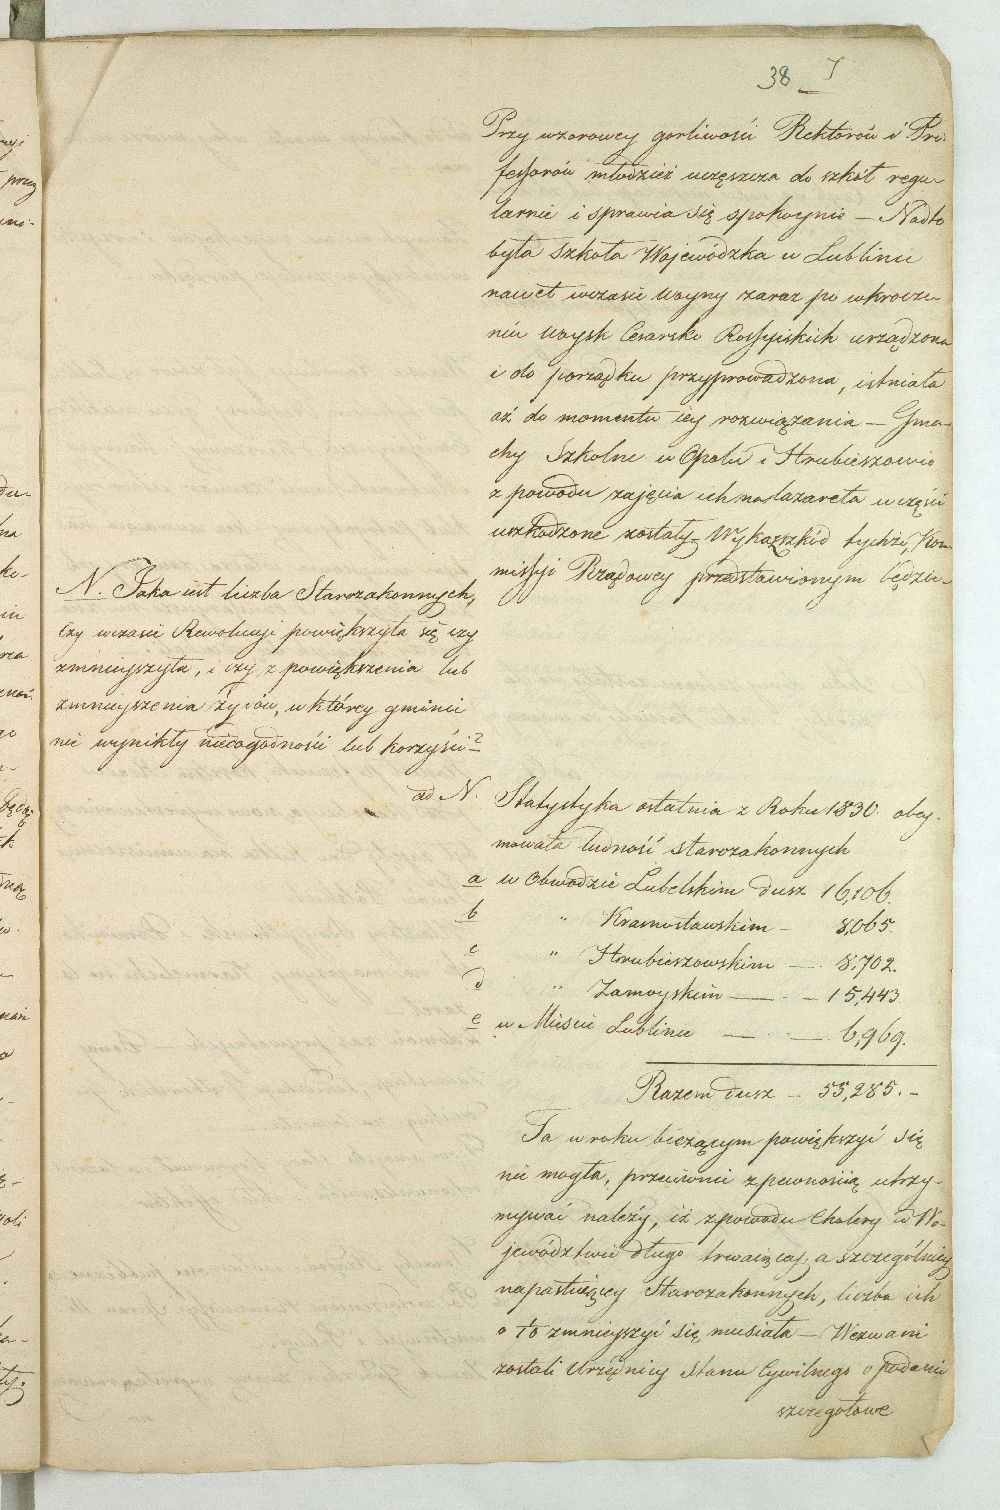 38 7
Przy wzorowey gorliwości Rektorów i Pro-
fessorów młodzież uczęszcza do szkół regu-
larnie i sprawia się spokoynie — Nadto
była Szkoła Wojewódzka w Lublinie
nawet wczasie Woyny zaraz po wkrocze-
niu Woysk Cesarsko Rossyiskich urządzona
i do porządku przyprowadzona, istniała
aż do momentu iey rozwiązania — Gma-
chy Szkolne w Opolu i Hrubieszowie
z powodu zajęcia ich na lazareta w części
uszkodzone zostały — Wykaz szkód tychże, Kom-
missyi Rządowey przedstawionym będzie —
N. Jaka iest liczba Starozakonnych,
Czy wczasie Rewolucyi powiększyła się czy
zmnieyszyła, i czy z powiększenia lub
zmnieyszenia Żydów, w którey gminie
nie wynikły niedogodności lub korzyści?
ad N. Statystyka ostatnia z Roku 1830. obey-
mowała ludność starozakonnych
a w Obwodzie Lubelskim dusz 16,106.
b " Krasnostawskim — 8,065.
c " Hrubieszowskim — 8,702.
d " Zamoyskim — 15,443.
e w Mieście Lublinie — 6,969.
Razem dusz — 55,285. —
Ta w roku bieżącym powiększyć się
nie mogła, przeciwnie z pewnością utrzy-
mywać należy, iż z powodu Cholery w Wo-
jewództwie długo trwaiącey, a szczególniey
napastuiącey Starozakonnych, liczba ich
o 1/10 zmnieyszyć się musiała — Wezwani
zostali Urzędnicy Stanu Cywilnego o podanie
szczegółowe